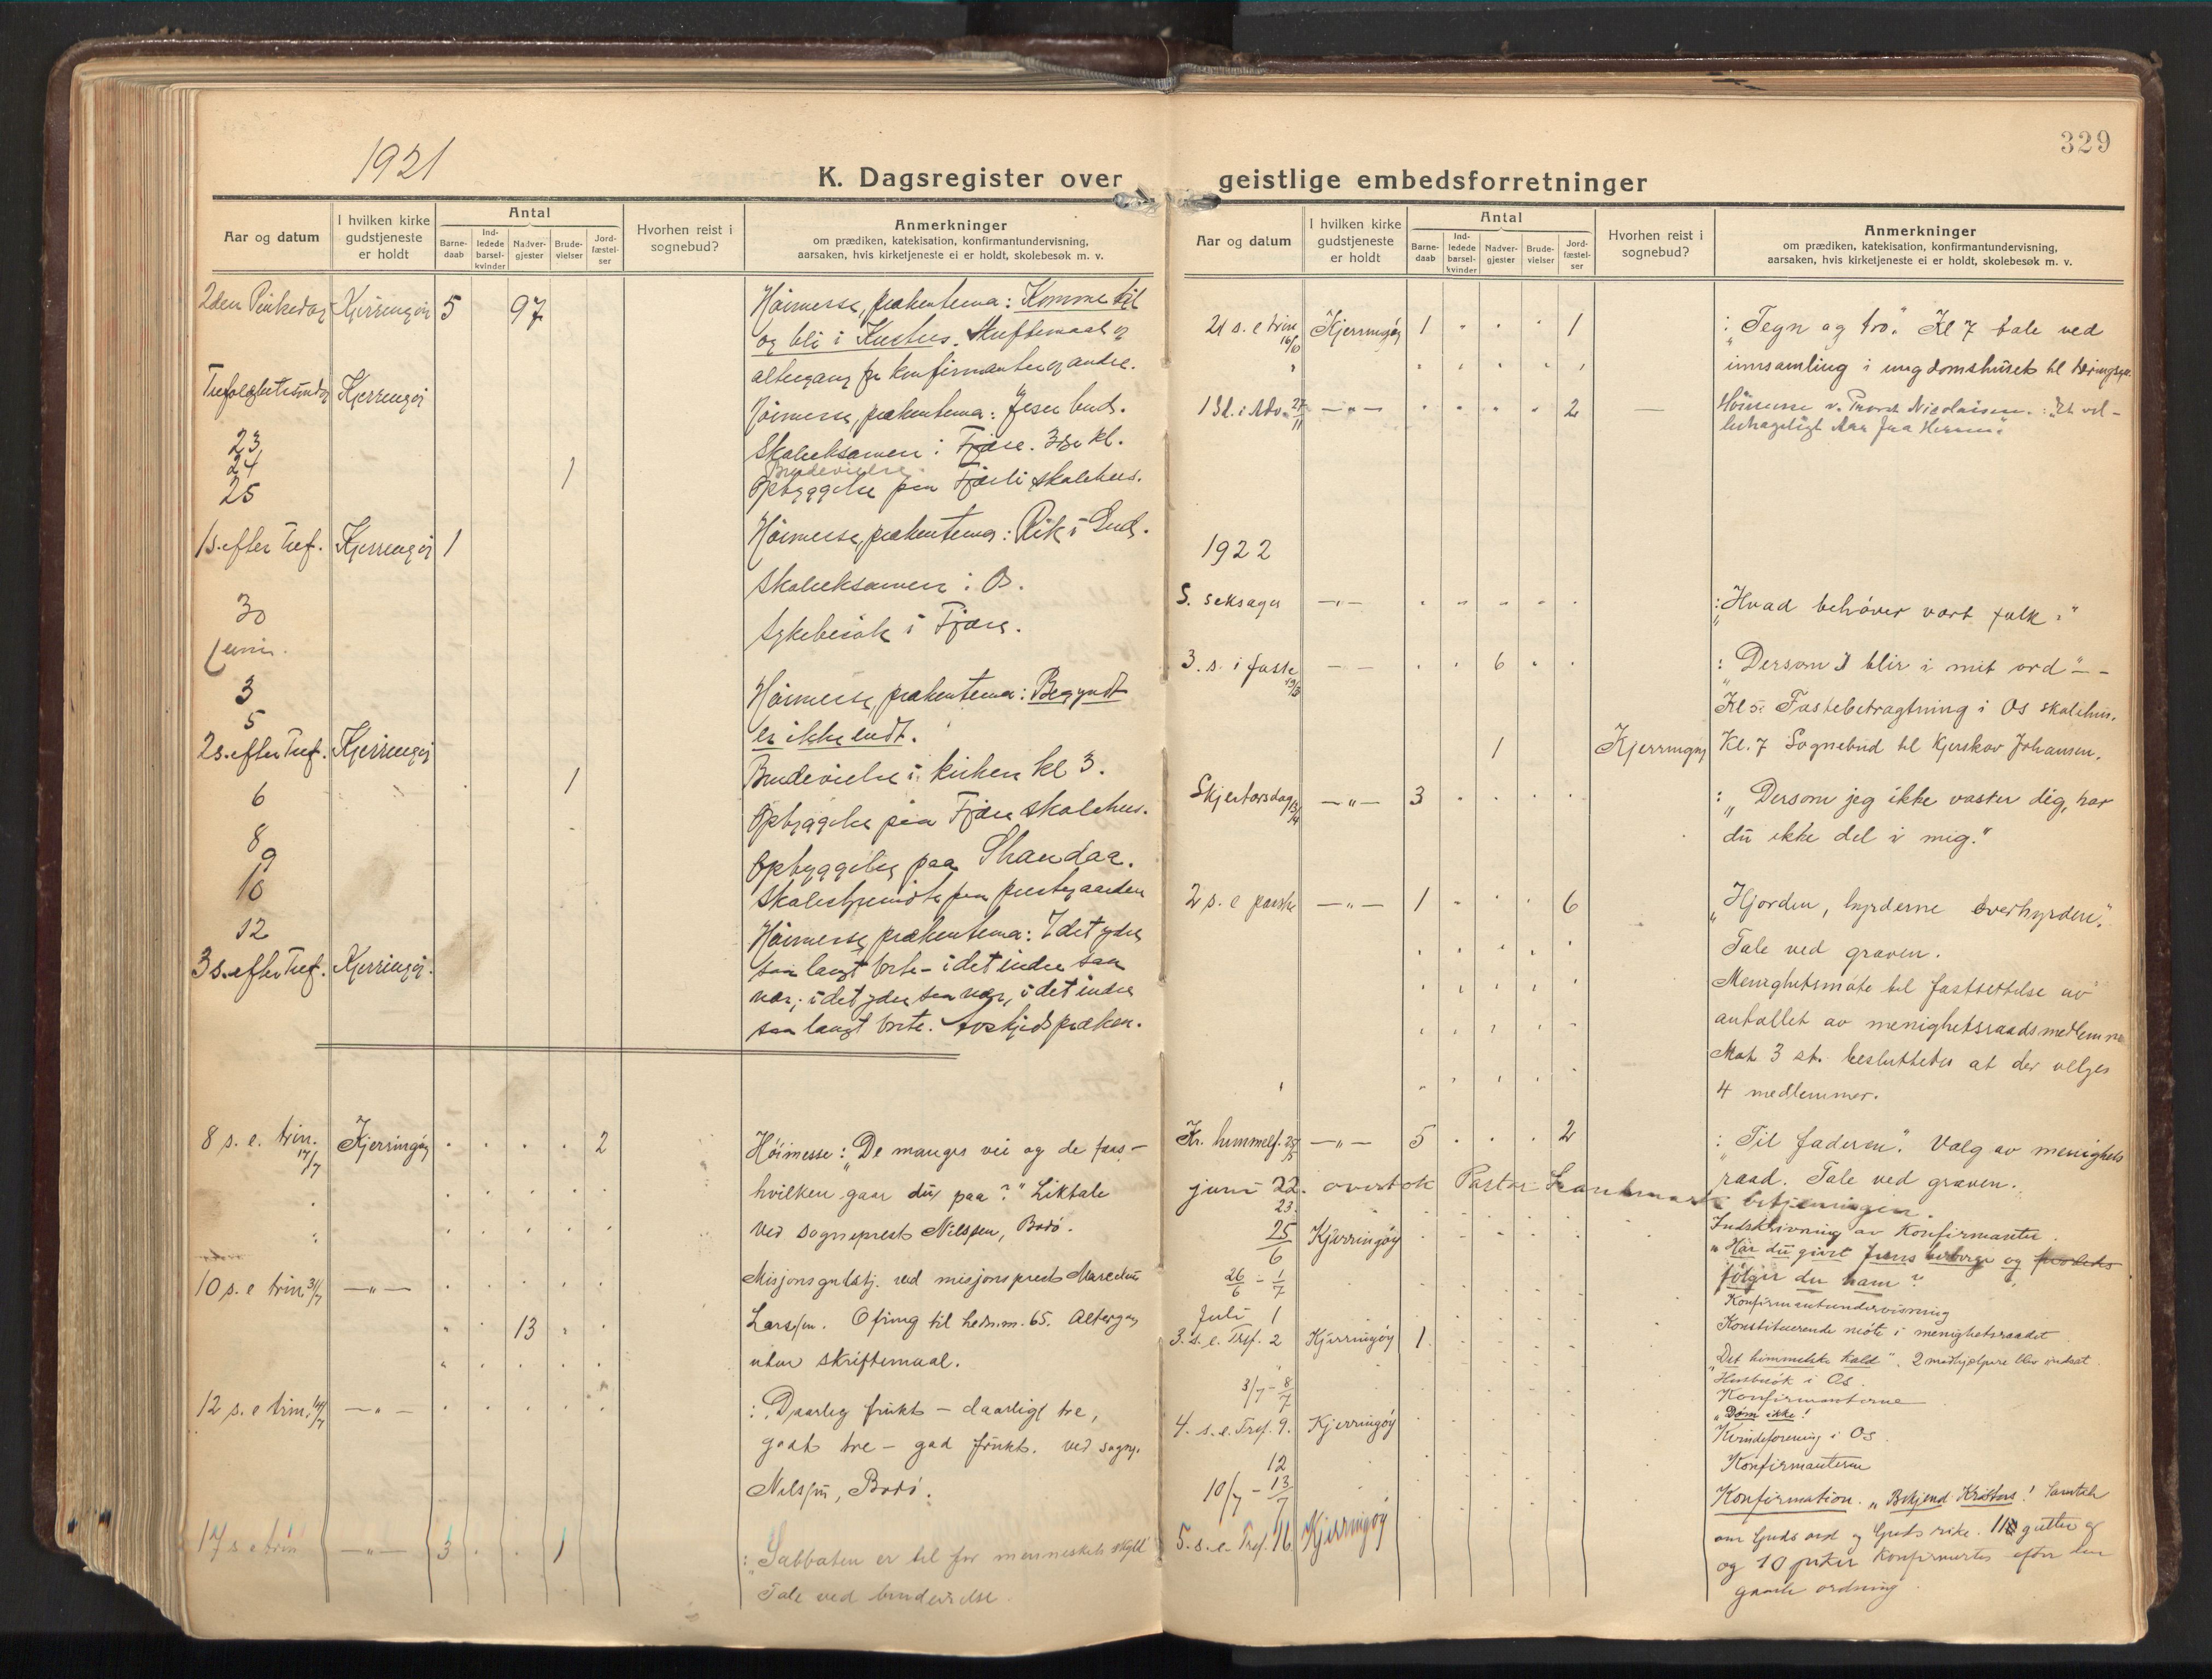 1921
K. Dagsregister over
Aar og datum
I hvilken kirke gudstjeneste er holdt
Antal
Barne-daab
Ind-ledede barsel-kvinder
Nadver-gjester
Brude-vielser
Jord-fæstel-ser
Hvorhen reist i sognebud?
Anmerkninger
om prædiken, katekisation, konfirmantundervisning,
aarsaken, hvis kirketjeneste ei er holdt, skolebesøk m. v.
2den Pinsedag Kjerringøy 5 97 Høimesse, prækentema: Komme til
og bli i Kristus. Skriftemaal og
altergang for konfirmanter og andre.
Kjerringøy
Høimesse, prækentema: Jesu bud.
23 Skoleeksamen i Fjære. 3de kl.
24 1 Brudevielse
25 Opbyggelse paa skolehus.
1 s. efter Tref. Kjerringøy 1 Høimesse, prækentema: Rik i Gud.
30 Skoleeksamen i Os.
juni.
3 Sykebesøk i Fjære.
5
2 s. efter Tref. Kjerringøy Høimesse, prækentema: Begyndt
er ikke endt.
6 1 Brudevielse i kirken kl 3.
8 Opbyggelse paa Fjære skolehus.
9
10 Opbyggelse paa
12 paa prestegaarden
3 s. efter Tref. Kjerringøy. Høimesse, prækentema: I det ydre
saa langt borte – i det indre saa
nær, i det ydre saa nær, i det indre
saa langt borte. Avskjedspræken.
8 s. e. trin. 17/7 Kjerringøy 2 Høimesse: „De manges vei og de faas –
hvilken gaar du paa?" Liktale
ved sogneprest Nilssen, Bodø.
10 s. e trin. 31/7 — „ — Misjonsgudstj. ved misjonsprest
13 Larssen. Ofring til hedn.m. 65. Altergang
uten skriftemaal.
12 s. e trin. 14/7 — „ — : „Daarlig frukt – daarligt tre,
godt tre – god frukt. ved sogne.
Nilssen, Bodø.
17 s e trin — „ — 3 1 : „Sabbaten er til for menneskets skyld"
Tale ved brudevielse.
329
geistlige embedsforretninger
Aar og datum
I hvilken kirke gudstjeneste er holdt
Antal
Barne-daab
Ind-ledede barsel-kvinder
Nadver-gjester
Brude-vielser
Jord-fæstel-ser
Hvorhen reist i sognebud?
Anmerkninger
om prædiken, katekisation, konfirmantundervisning,
aarsaken, hvis kirketjeneste ei er holdt, skolebesøk m. v.
21 s. e trin 16/10 Kjerringøy 1 1 : „Tegn og tro." Kl 7 tale ved
innsamling i ungdomshuset til
1 S. i Adv. 27/11 — „ — 2 — Høimesse v. Provst Nicolaisen. : „Et vel-
behageligt Aar fra Herren."
1922
S. seksages — „ — : „Hvad behøver vort folk."
3. s. i faste 19/3 — — 6 : „Dersom I blir i mit ord" – –
Kl 5: Fastebetragtning i Os skolehus.
1 Kjerringøy Kl. 7 Sognebud til Johansen.
Skjertorsdag 13/4 — „ — 3 : „Dersom jeg ikke vasker dig, har
du ikke del i mig."
2 s. e paaske — „ — 1 6 „Hjorden, hyrderne overhyrden."
Tale ved graven.
Menighetsmøte til fastsettelse av
antallet av menighetsraadsmedlemmer
Mot 3 st. besluttedes at der velges
4 medlemmer.
Kr. himmelf. 25/5 — „ — 5 2 : „Til faderen". Valg av menighets
raad. Tale ved graven.
juni 22. overtok Pastor betjeningen.
23. Indskrivning av Konfirmanter.
25/6 Kjerringøy „Har du givet Jesus herberge og
følger du ham?
26/6 – 1/7 Konfirmantundervisning
Juli 1 Konstituerende møte i menighetsraadet
3. s. e. Tref. 2 Kjerringøy 1 „Det himmelske kald". 2 medhjelpere blev indsat.
Husbesøk i Os.
3/7 – 8/7 Konfirmanterne
4. s. e. Tref. 9. Kjerringøy „Døm ikke!
12 Kvindeforening i Os.
10/7 – 13/7 Konfirmanterne
5. s. e. Tref. 16 Kjerringøy Konfirmation. „Bekjend Kristus! Samtale
om Guds ord og Guds rike. 11 gutter og
og 10 piker konfirmertes efter den
gamle ordning.